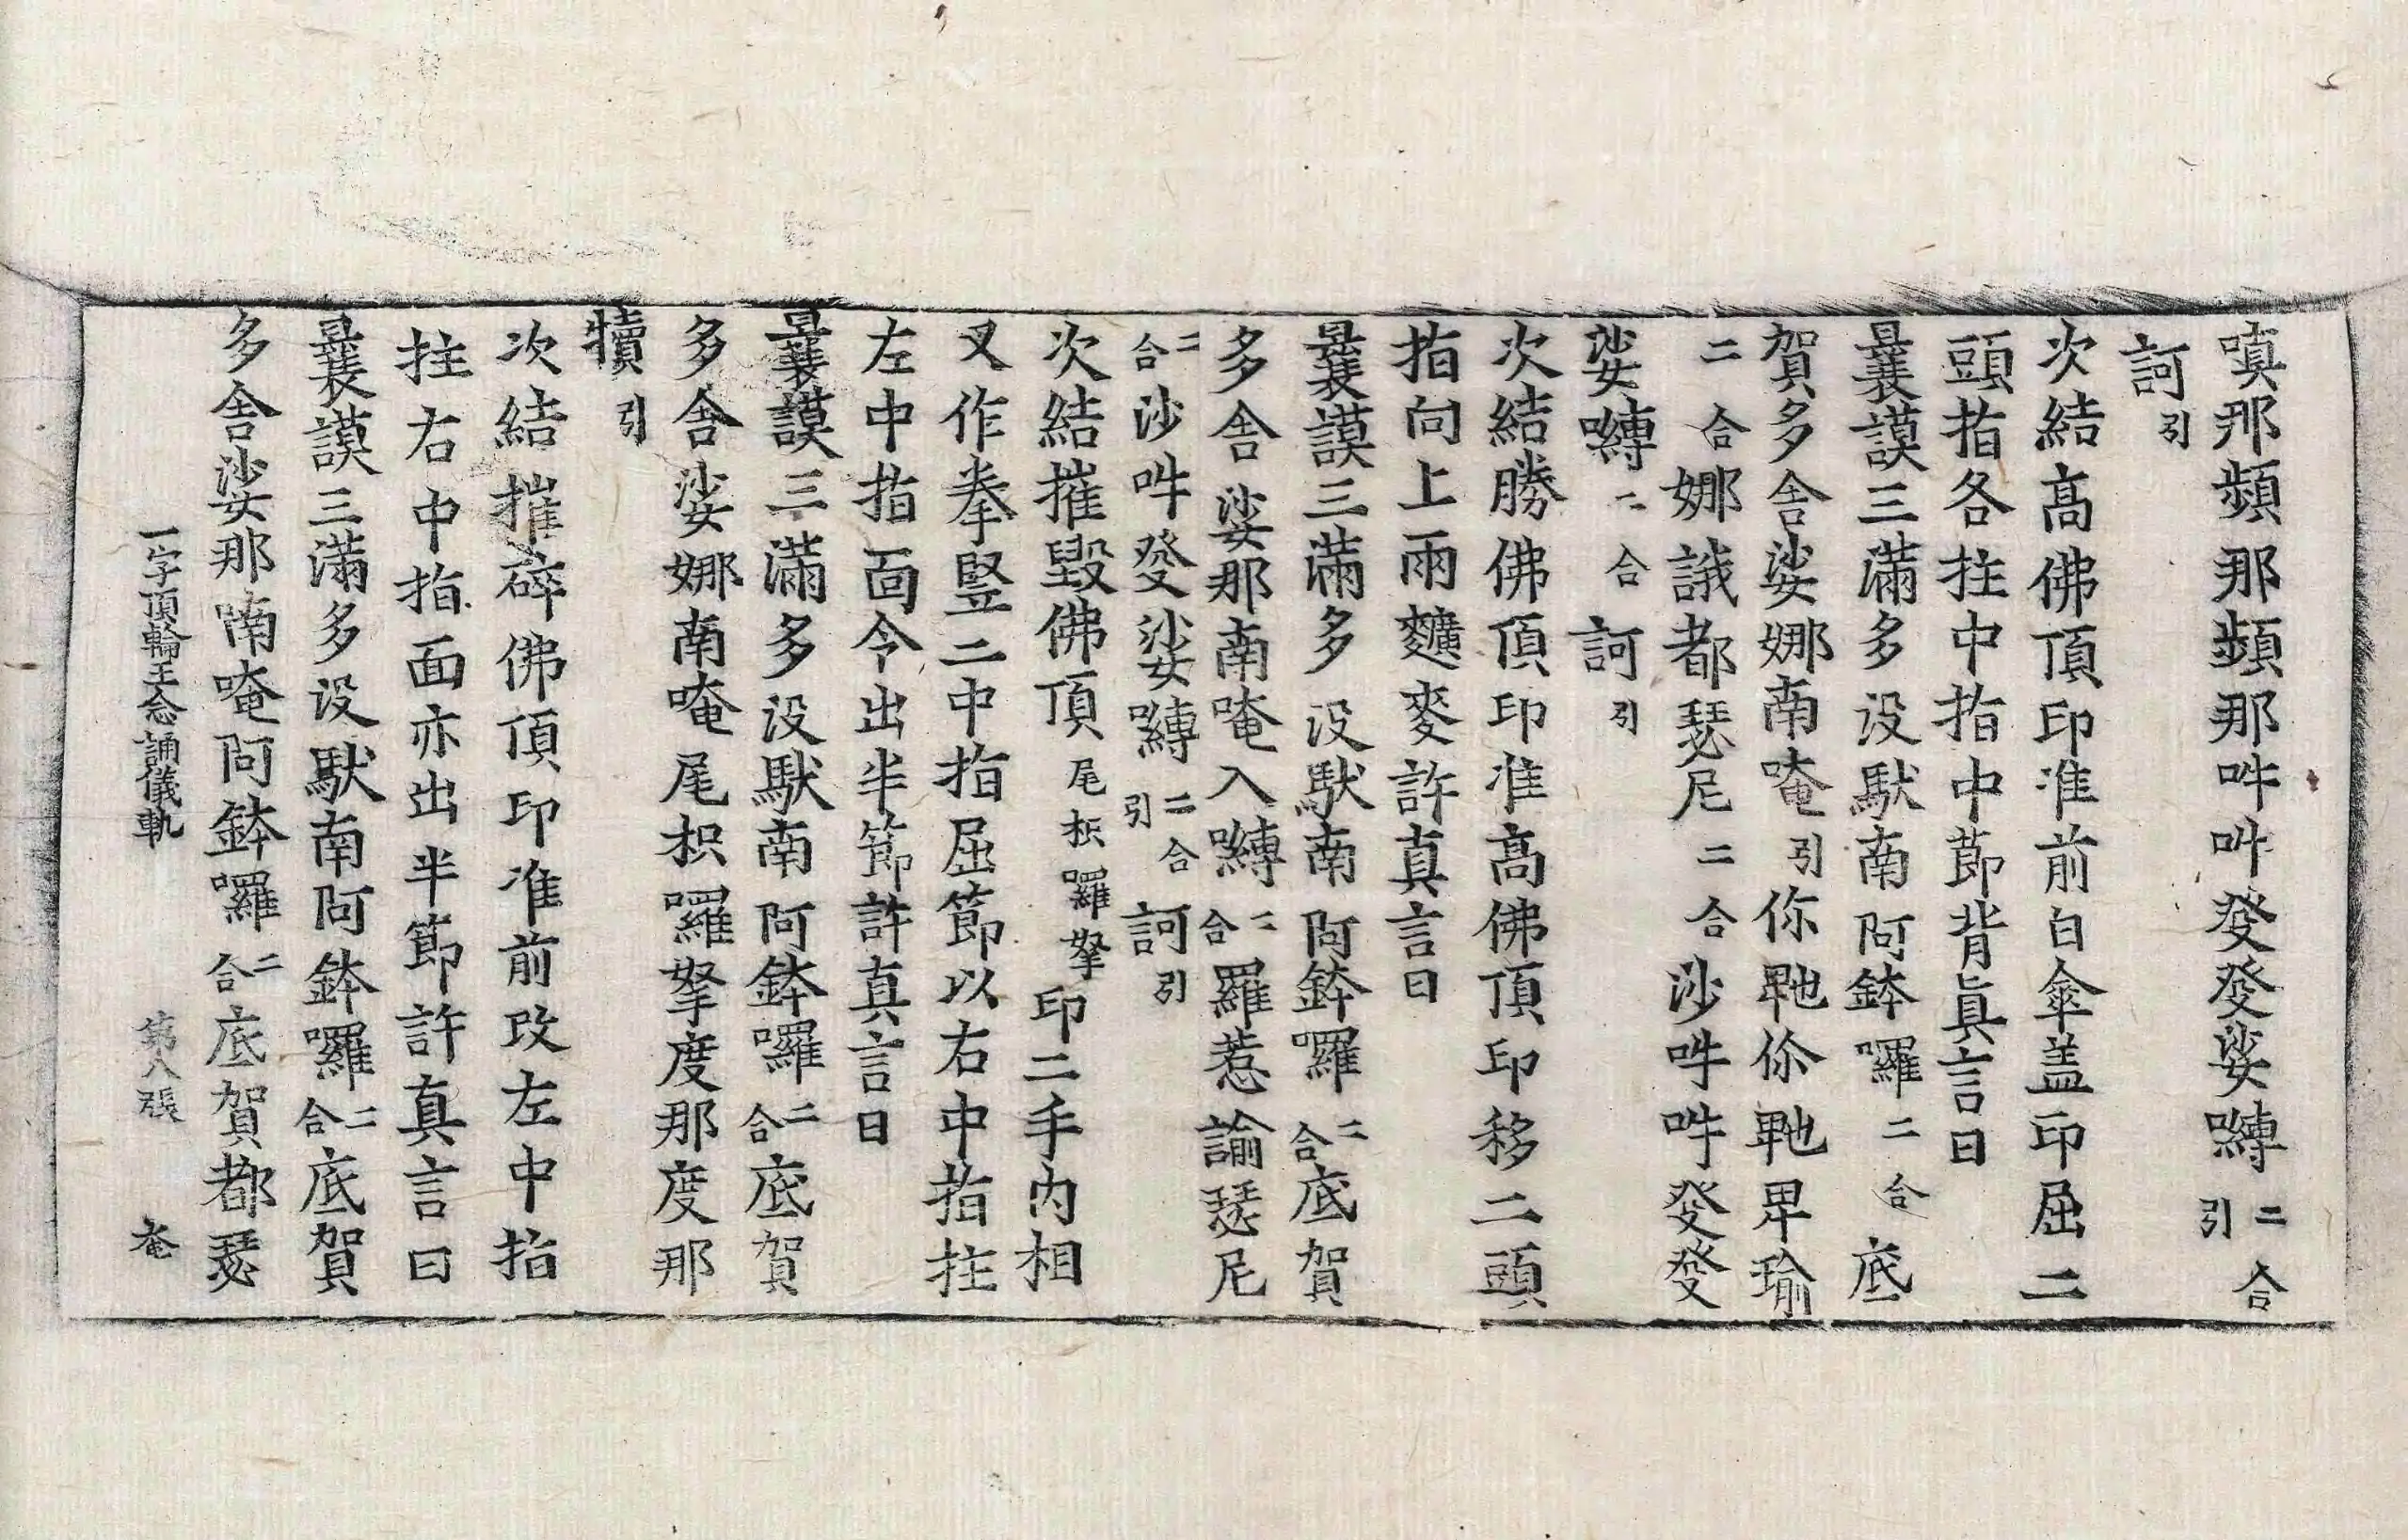 嗔那頻那頻那吽吽發發娑嚩二合引
訶引
次結高佛頂印准前白傘盖印屈二
頭指各拄中指中節背眞言曰
曩謨三滿多没馱南阿鉢囉二合底
賀多舍娑娜南唵引你䫂你䫂畀瑜
二合娜誐都瑟尼二合沙吽吽發發
娑嚩二合訶引
次結勝佛頂印准高佛頂印移二頭
指向上兩穬麥許真言曰
曩謨三滿多没馱南阿鉢囉二合底賀
多舍娑那南唵入嚩二合羅惹諭瑟尼
二合沙吽發娑嚩二合引訶引
次結摧毀佛頂尾枳囉拏印二手内相
叉作拳竪二中指屈節以右中指拄
左中指面令出半節許真言曰
曩謨三滿多没馱南阿鉢囉二合底賀
多舍娑娜南唵尾枳囉拏度那度那
犢引
次結摧碎佛頂印准前改左中指
拄右中指面亦出半節許真言曰
曩謨三滿多没馱南阿鉢囉二合底賀
多舍娑那喃唵阿鉢囉二合底賀都瑟
一字頂輪王念誦儀軌 第八張 奄